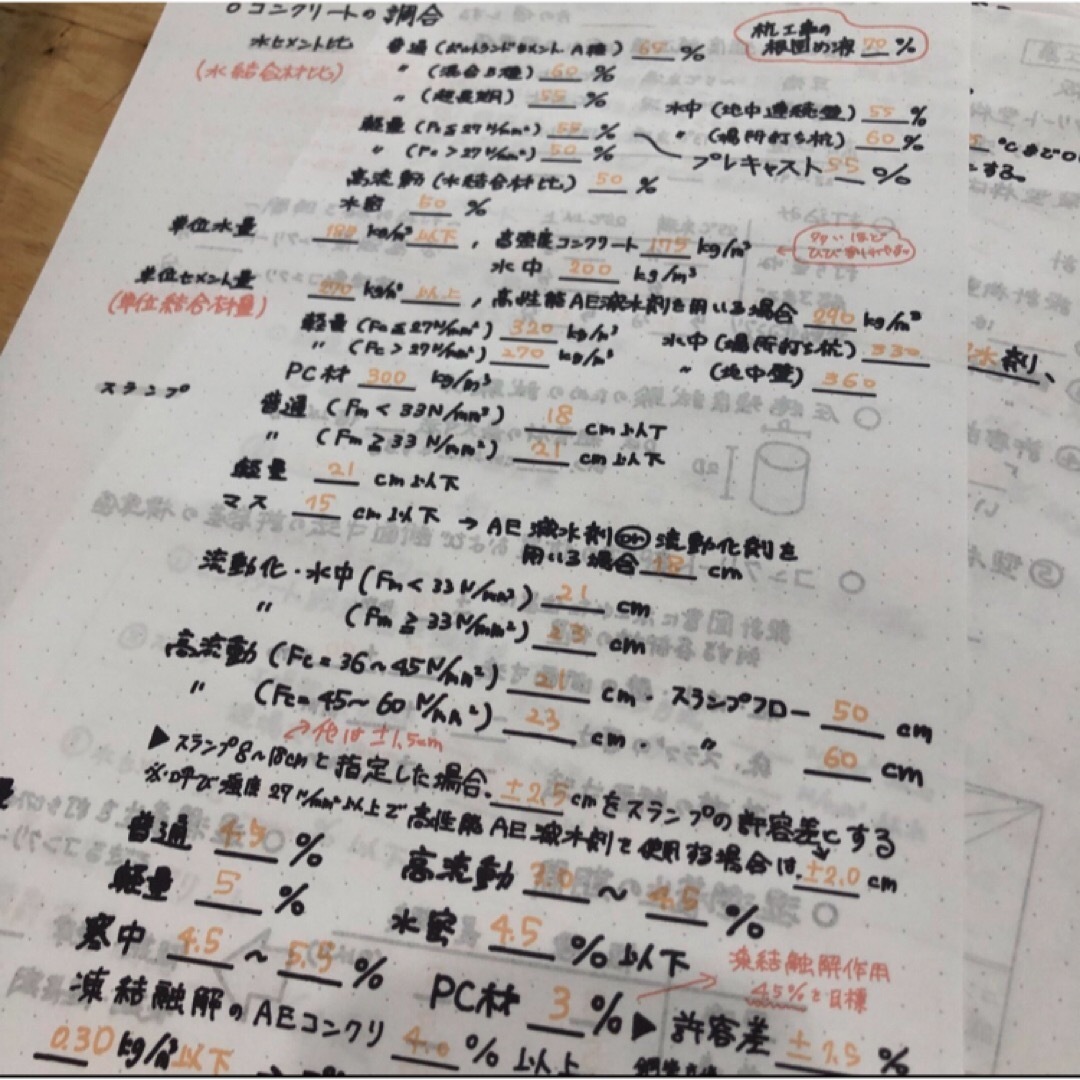 ○コンクリートの調合
水セメント比 普通(ポルトランドセメント A種) 65 %
(水結合材比) 〃 (混合B種) 60 %
杭工事の
根固め液 70 %
〃 (超長期) 55 % 水中(地中連続壁) 55 %
軽量 (Fc≦27N/mm²) 55 % 〃 (場所打ち杭) 60 %
〃 (Fc>27N/mm²) 50 % プレキャスト 55 %
高流動(水結合材比) 50 %
水密 50 %
単位水量 kg/m³ 以下, 高強度コンクリート 175 kg/m³
水中 200 kg/m³
単位セメント量 270 kg/m³ 以上, 高性能AE減水剤を用いる場合 290 kg/m³
(単位結合材量) 軽量 (Fc≦27N/mm²) 320 kg/m³ 水中(場所打ち杭) 330
〃 (Fc>27N/mm²) 270 kg/m³ 〃 (地中壁) 360
PC材 300 kg/m³
スランプ 普通 (Fm<33N/mm²) 18 cm以下
〃 (Fm≧33N/mm²) 21 cm以下
軽量 21 cm以下
マス 15 cm以下 → AE減水剤 or 流動化剤を
用いる場合 18 cm
流動化・水中(Fm<33N/mm²) 21 cm
〃 (Fm≧33N/mm²) 23 cm
高流動 (Fc=36~45N/mm²) 21 cm・スランプフロー 50 cm
〃 (Fc=45~60N/mm²) 23 cm・ 〃 60 cm
他は±1.5cm
▶スランプ8~18cmと指定した場合、±2.5cmをスランプの許容差とする
※呼び強度27N/mm²以上で高性能AE減水剤を使用する場合は、±2.0 cm
普通 4.5 % 高流動 3.0 ~ 4.5 %
軽量 5 % 水密 4.5 % 以下
寒中 4.5 ~ 5.5 % PC材 3 % ▶許容差 ±1.5 %
凍結融解作用
4.5%を目標
凍結融解のAEコンクリ 4.0 % 以上
0.30 kg/m³以下